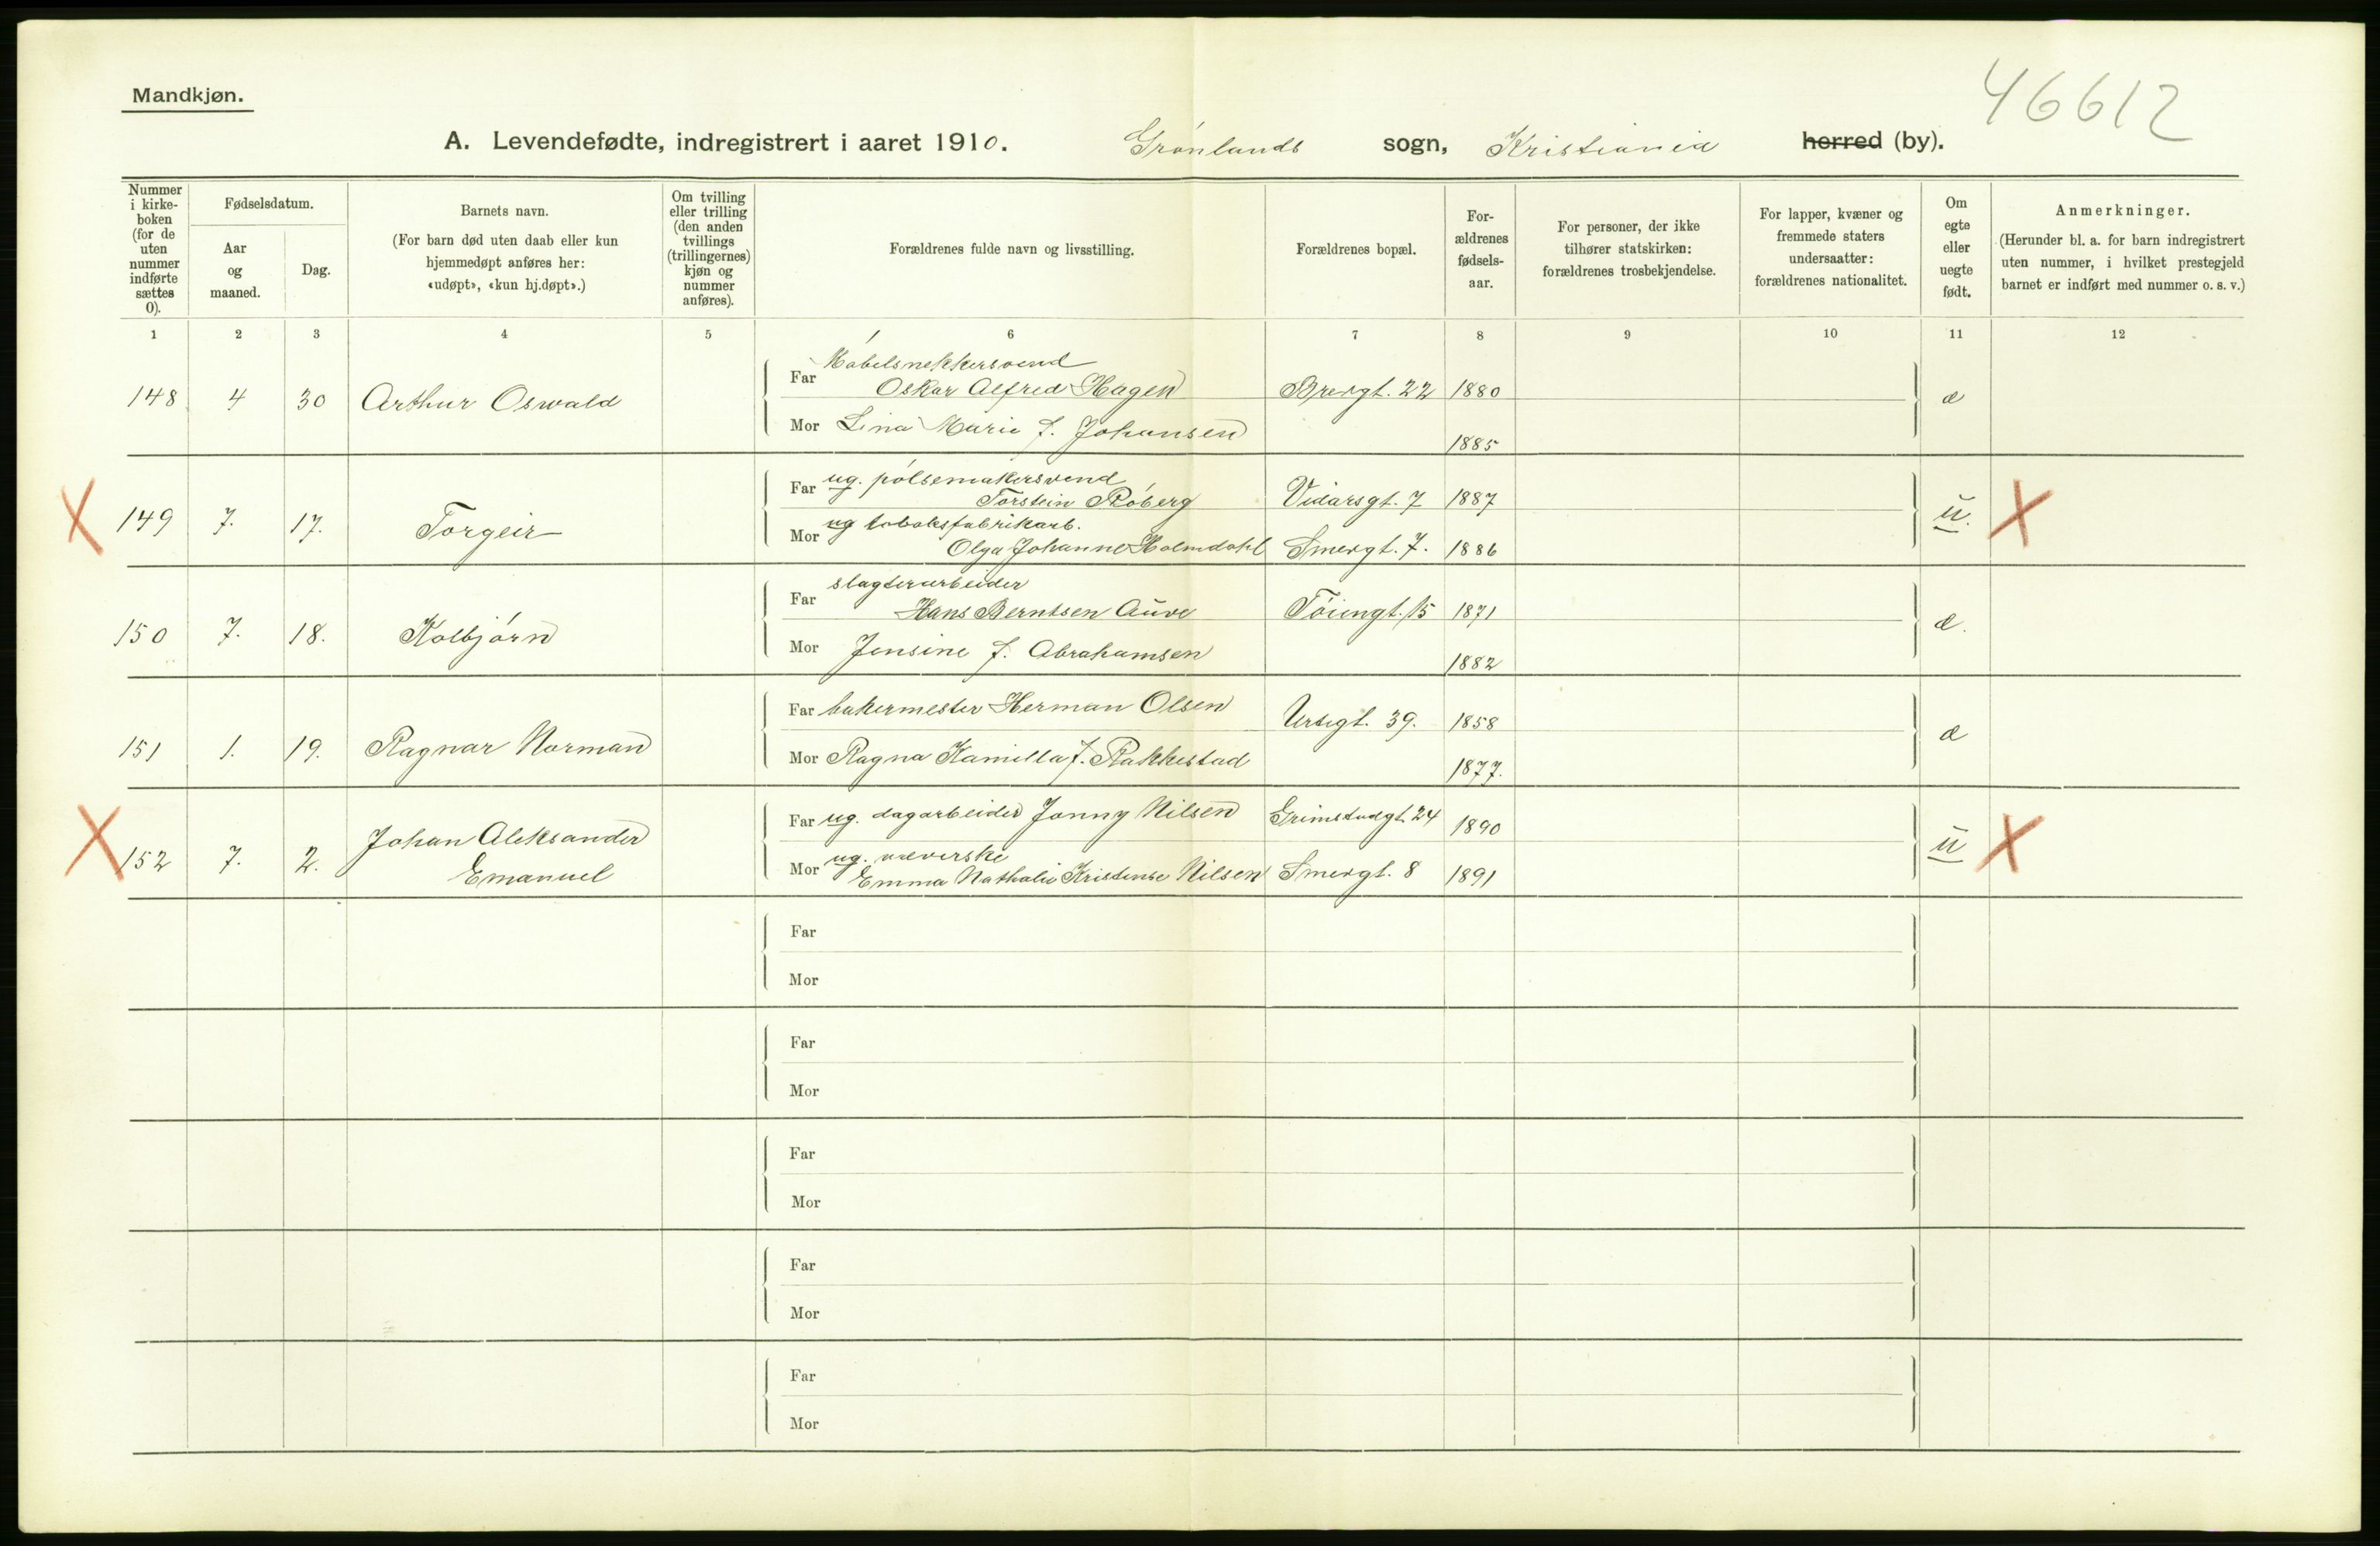 46612
Mandkjøn.
A. Levendefødte, indregistrert i aaret 1910. Grønlands sogn, Kristiania herred (by).
Nummer i kirke-boken (for de uten nummer indførte sættes 0).
Fødselsdatum.
Aar og maaned.
Dag.
Barnets navn.
(For barn død uten daab eller kun hjemmedøpt anføres her: «udøpt», «kun hj.døpt».)
Om tvilling eller trilling (den anden tvillings (trillingernes) kjøn og nummer anføres).
Forældrenes fulde navn og livsstilling.
Forældrenes bopæl.
For-ældrenes fødsels-aar.
For personer, der ikke tilhører statskirken: forældrenes trosbekjendelse.
For lapper, kvæner og fremmede staters undersaatter: forældrenes nationalitet.
Om egte eller uegte født.
Anmerkninger.
(Herunder bl. a. for barn indregistrert uten nummer, i hvilket prestegjeld barnet er indført med nummer o. s. v.)
1 2 3 4 5 6 7 8 9 10 11 12
Møbelsnekkersvend
148 4 30 Arthur Oswald Far Oskar Alfred Hagen 1880 æ
Mor Lina Marie f. Johansen 1885
ug. pølsemakersvend
X 149 7. 17. Torgeir Far Torstein Røberg Vidarsgt. 7 1887 ŭ. X
ug tobaksfabrikarb.
Mor Olga Johanne Holmdahl Smergt. 7. 1886
slagterarbeider
150 7. 18. Kolbjørn Far Hans Berntsen Auve Tøiengt. 15 1871 æ.
Mor Jensine f. Abrahamsen 1882
151 1. 19. Ragnar Norman Far bakermester Herman Olsen Urtegt. 39. 1858 æ
Mor Ragna Kamilla f. Rakkestad 1877.
X 152 7. 2. Johan Aleksander Far ug. dagarbeider Jonny Nilsen Grimstadgt. 24 1890 ŭ X
Emanuel
ug. væverske
Mor Emma Nathalie Kristense Nilsen Smergt. 8 1891
Far
Mor
Far
Mor
Far
Mor
Far
Mor
Far
Mor